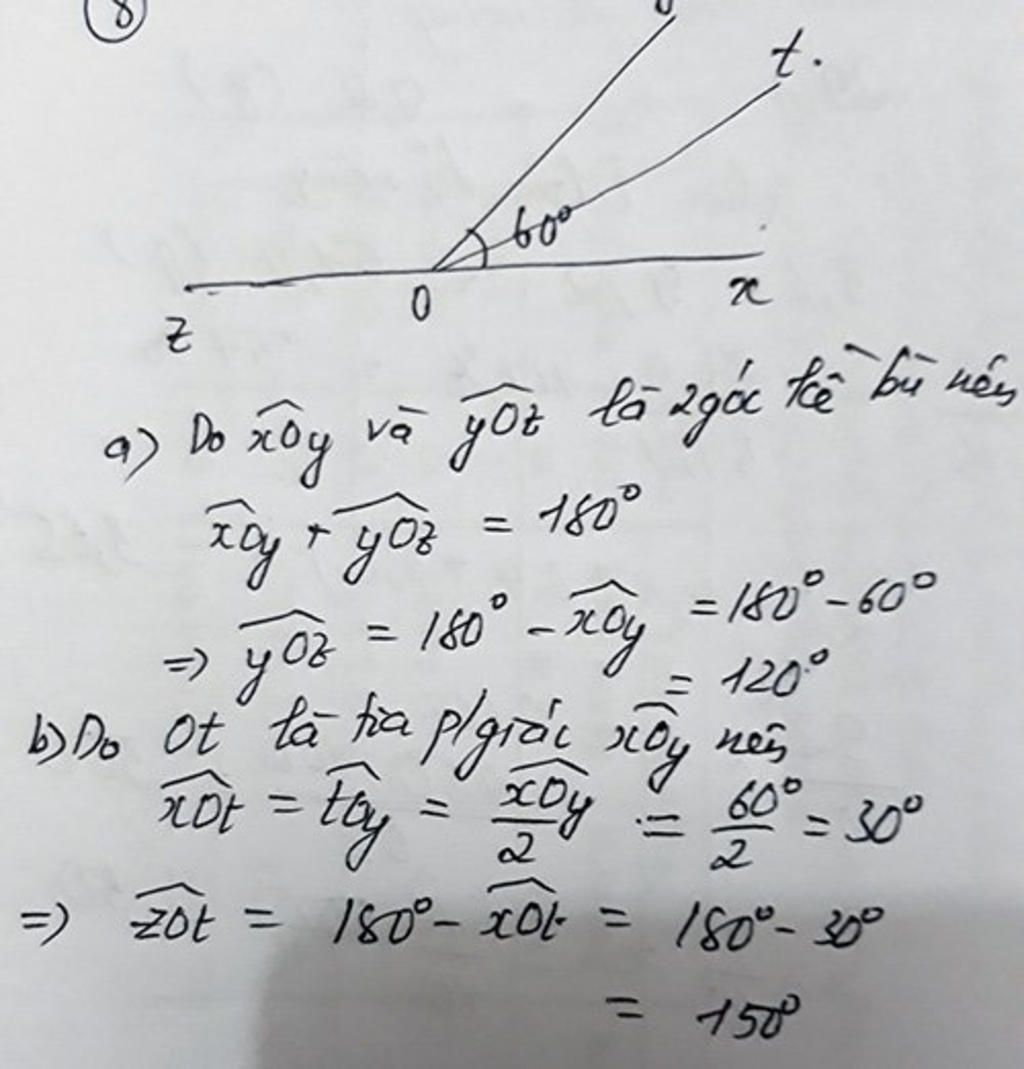 8
y
t.
60°
z
O
x
a) Do xOy và yOz là 2 góc kề bù nên
xOy + yOz = 180°
=> yOz = 180° - xOy = 180° - 60°
= 120°
b) Do Ot là tia p/giác xOy nên
xOt = tOy = xOy/2 = 60°/2 = 30°
=> zOt = 180° - xOt = 180° - 30°
= 150°